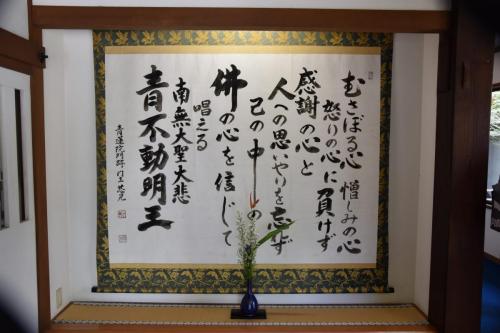 むさぼる心 憎しみの心
怒りの心に負けず
感謝の心と
人への思いやりを忘ず
己の中の
佛の心を信じて
唱える
南無大聖大悲
青不動明王
青蓮院門跡